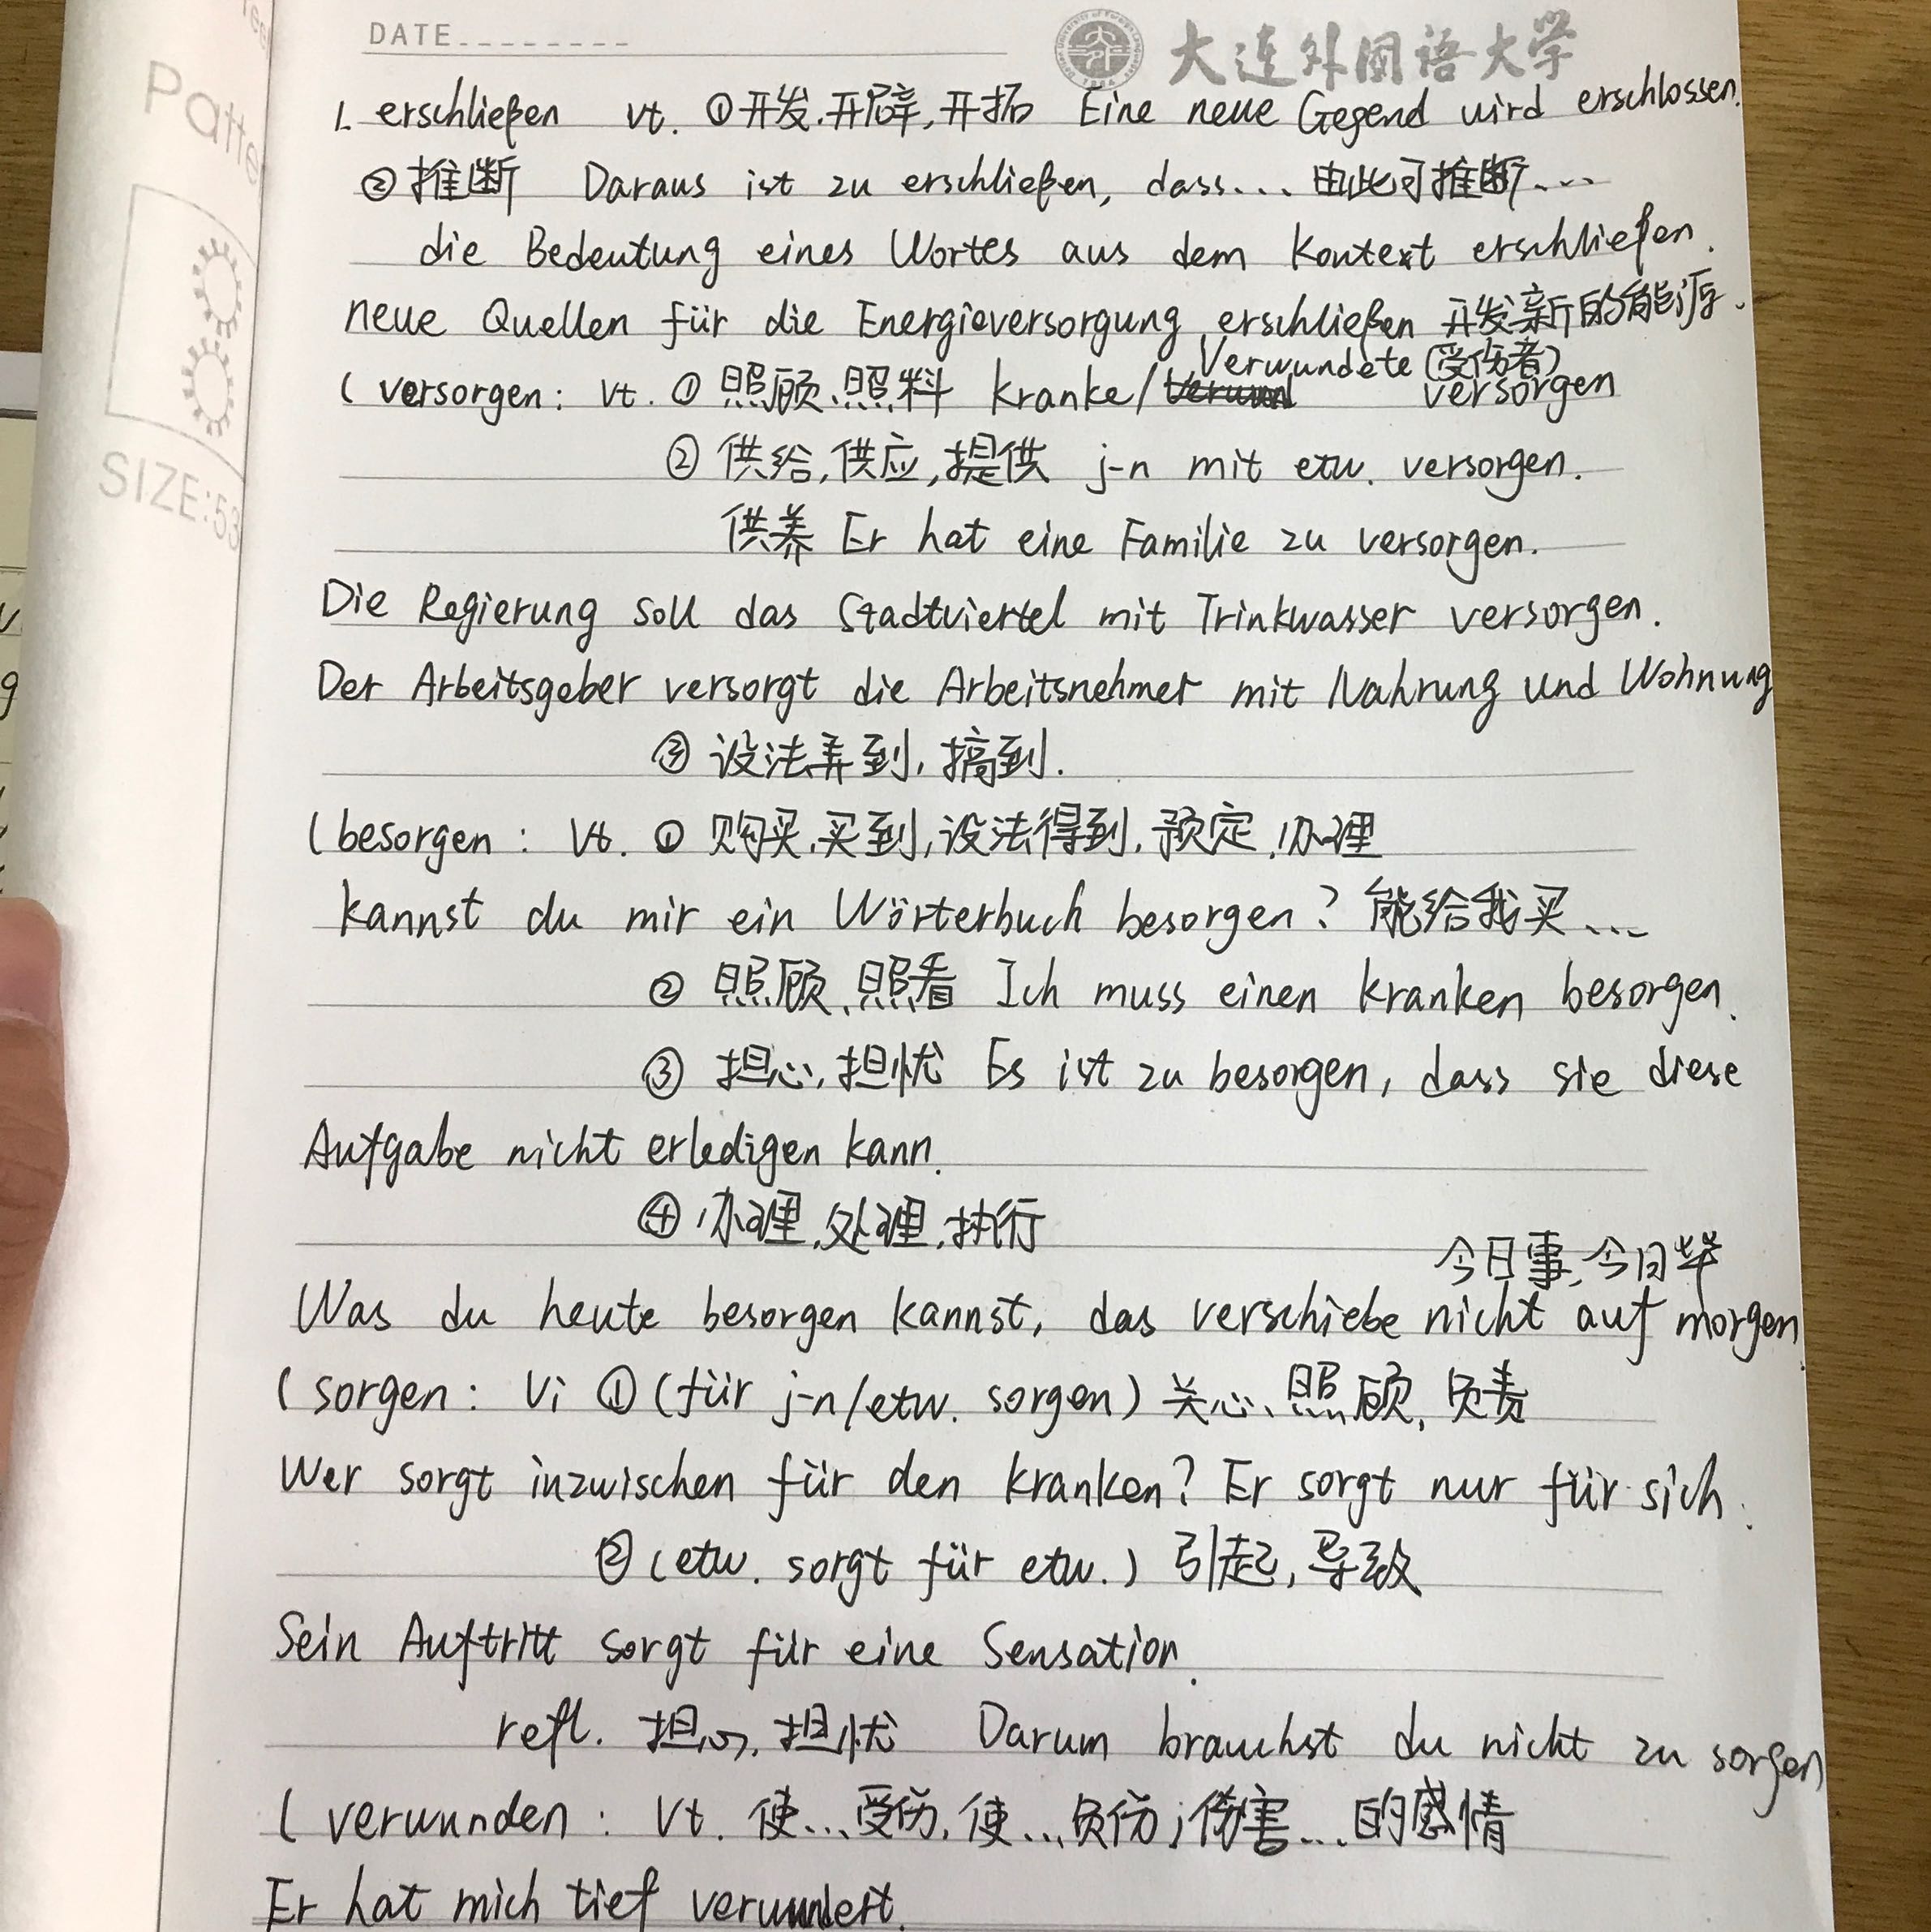 DATE
大连外国语大学
Patte
SIZE:53
1. erschließen vt. ①开发,开辟,开拓 Eine neue Gegend wird erschlossen.
②推断 Daraus ist zu erschließen, dass... 由此可推断...
die Bedeutung eines Wortes aus dem Kontext erschließen.
neue Quellen für die Energieversorgung erschließen 开发新的能源.
Verwundete (受伤者)
(versorgen: vt. ①照顾、照料 Kranke/ versorgen
②供给,供应,提供 j-n mit etw. versorgen.
供养 Er hat eine Familie zu versorgen.
Die Regierung soll das Stadtviertel mit Trinkwasser versorgen.
Der Arbeitsgeber versorgt die Arbeitsnehmer mit Nahrung und Wohnung
③设法弄到,搞到.
(besorgen: vt. ①购买,买到,设法得到,预定,办理
kannst du mir ein Wörterbuch besorgen? 能给我买...
②照顾、照看 Ich muss einen Kranken besorgen.
③担心,担忧 Es ist zu besorgen, dass sie diese
Aufgabe nicht erledigen kann.
④办理,处理,执行
今日事,今日毕
Was du heute besorgen kannst, das verschiebe nicht auf morgen.
(sorgen: vi ①(für j-n/etw. sorgen) 关心、照顾,负责
Wer sorgt inzwischen für den Kranken? Er sorgt nur für sich.
②(etw. sorgt für etw.) 引起,导致
Sein Auftritt sorgt für eine Sensation.
refl. 担心,担忧 Darum brauchst du nicht zu sorgen
(verwunden: vt. 使...受伤,使...负伤;伤害...的感情
Er hat mich tief